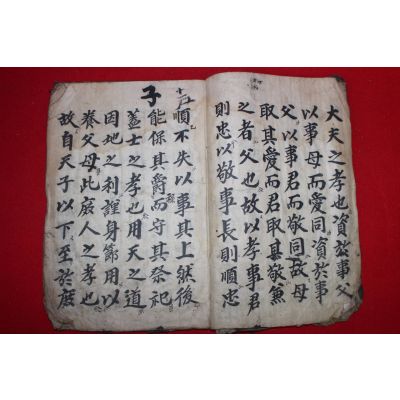 大夫之孝也資於事父
以事母而愛同資於事
父以事君而敬同故母
取其愛而君取其敬兼
之者父也故以孝事君
則忠以敬事長則順忠
順不失以事其上然後
子
能保其爵而守其祭祀
蓋士之孝也用天之道
因地之利謹身節用以
養父母此庶人之孝也
故自天子以下至於庶